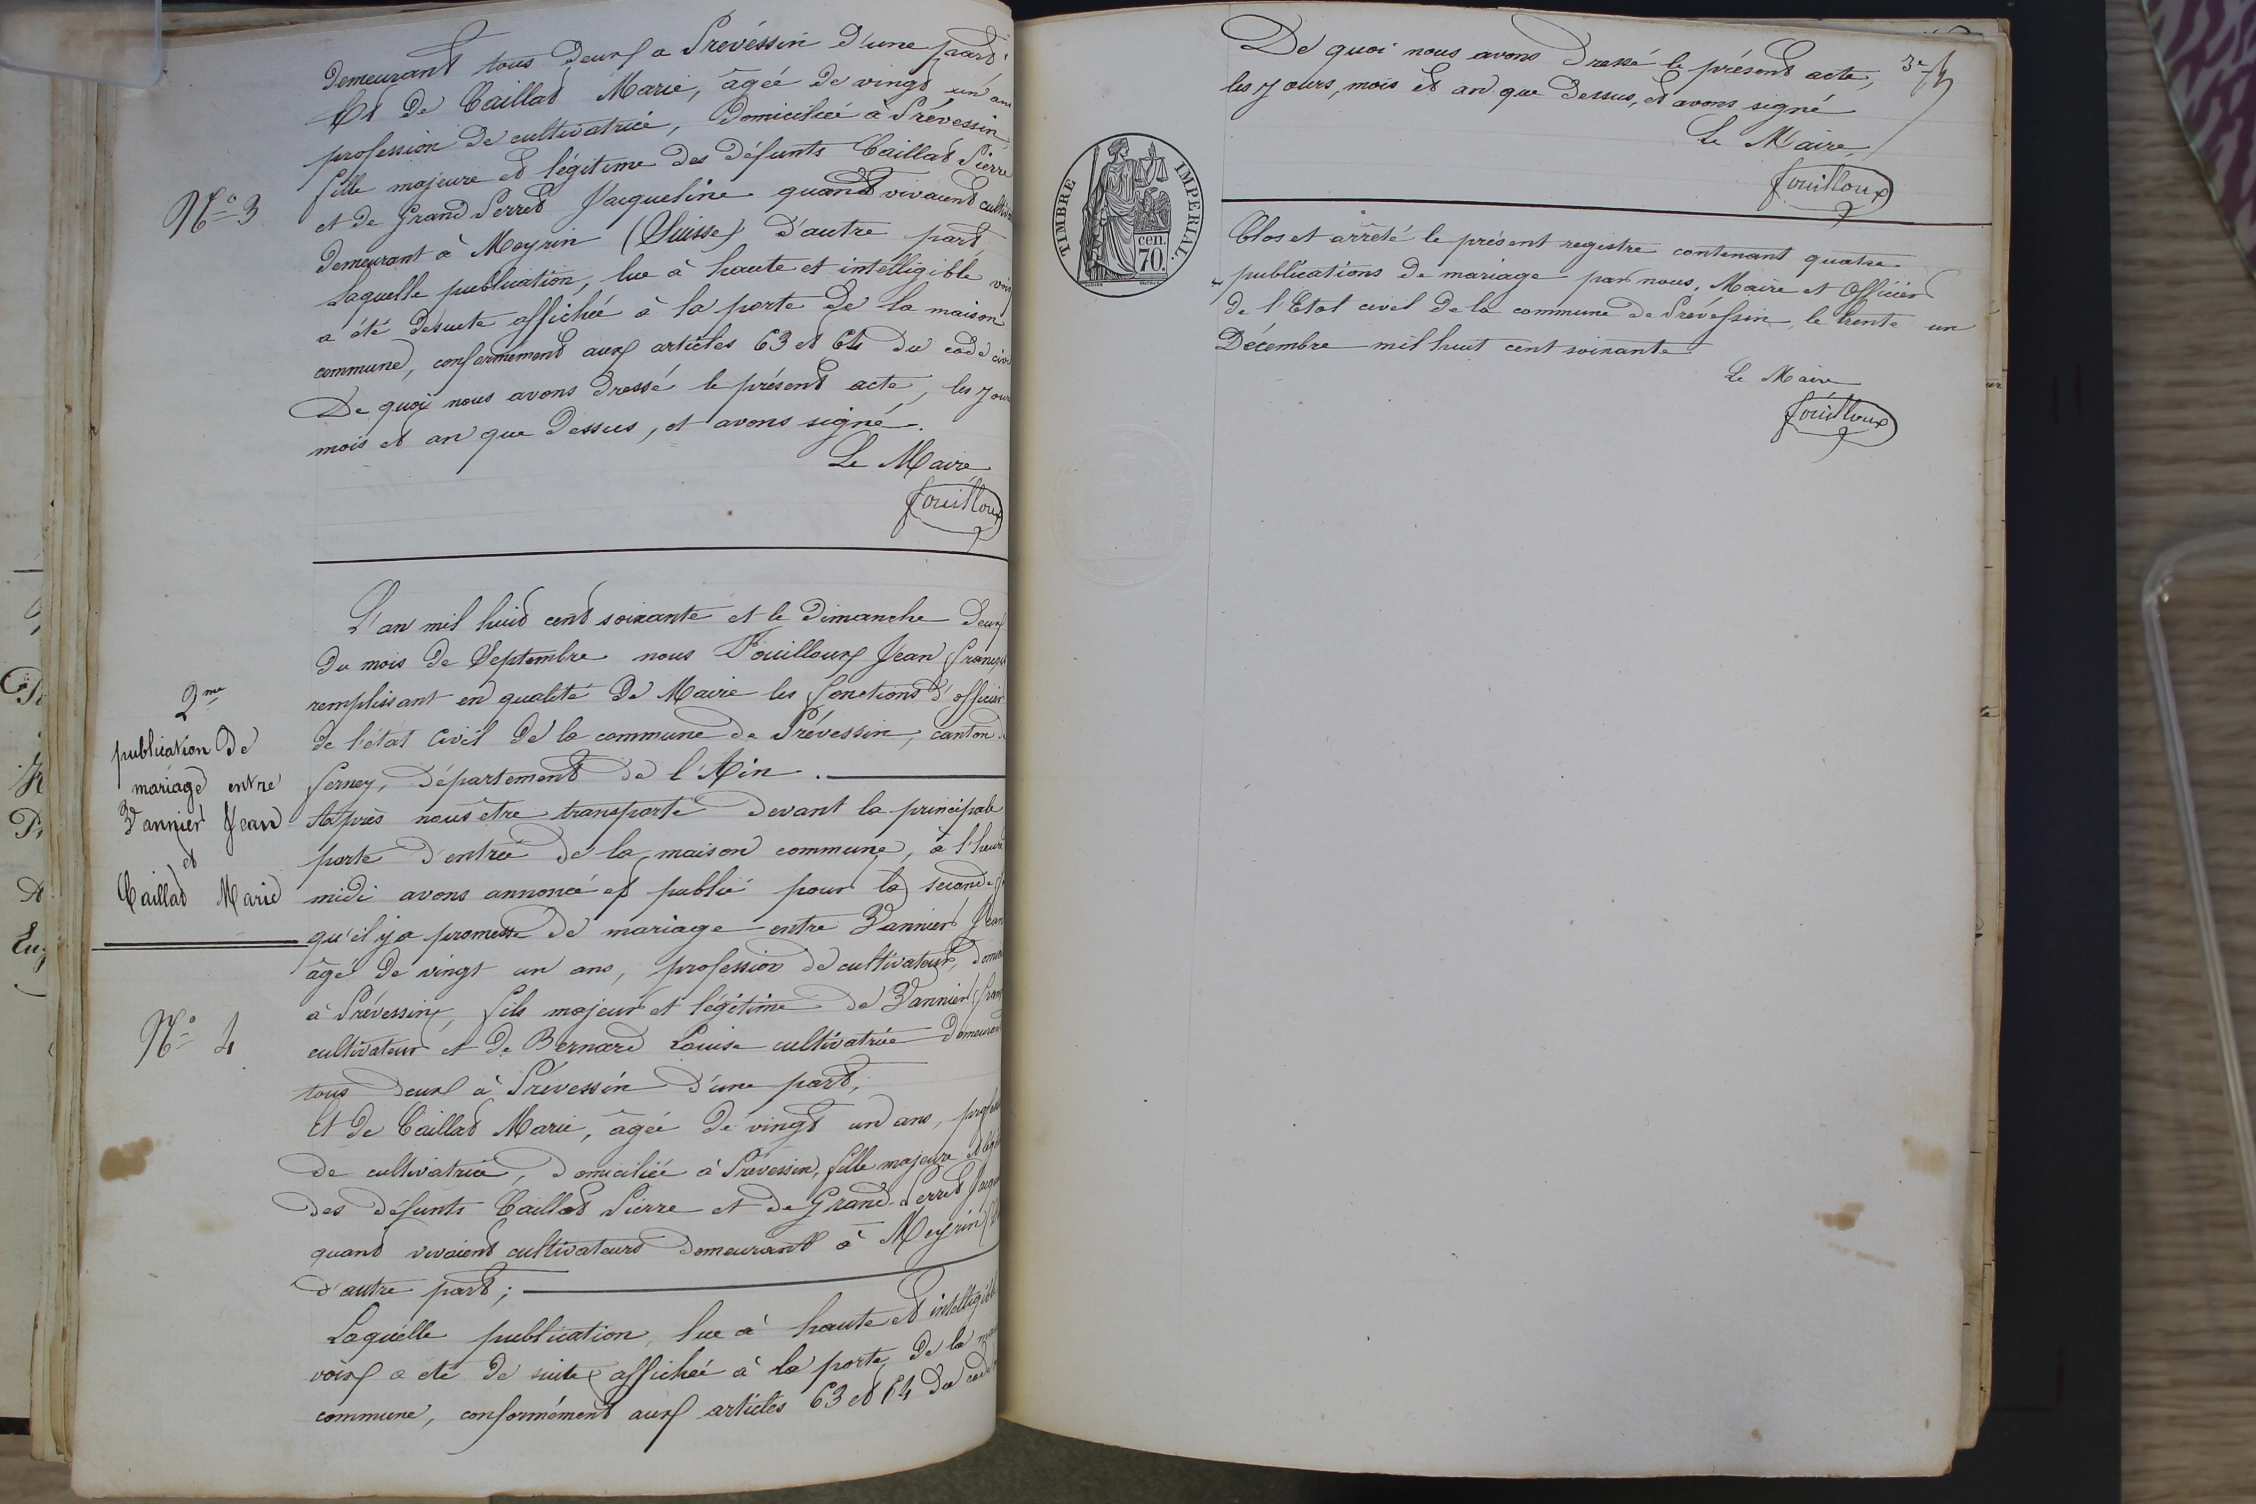 demeurant tous deux a Prévéssin d'une part;
Et de Caillat Marie, âgée de vingt un ans
profession de cultivatrice, domiciliée à Prévessin,
fille majeure et légitime des défunts Caillat Pierre
et de Grand Perret Jacqueline quand vivaient
demeurant à Meyrin (Suisse) d'autre part,
Laquelle publication, lue à haute et intelligible voix
a été desuete affichée à la porte de la maison
commune, conformément aux articles 63 et 64 du code civil
De quoi nous avons dressé le présent acte, les jour
mois et an que dessus, et avons signé.
Le Maire
fouilloux
N° 3
L'an mil huit cent soixante et le dimanche deux
du mois de Septembre nous Fouilloux Jean François
remplissant en qualité de Maire les fonctions d'officier
de l'état civil de la commune de Prévessin, canton
ferney, département de l'Ain.
Après nous être transporté devant la principale
porte d'entrée de la maison commune, à l'heure
midi avons annoncé et publié pour la seconde
qu'il y a promesse de mariage entre Vannier Jean
âgé de vingt un ans, profession de cultivateur,
à Prévessin, fils majeur et légitime de Vannier
cultivateur et de Bernard Louise cultivatrice demeurant
tous deux à Prévessin d'une part;
Et de Caillat Marie, âgée de vingt un ans,
de cultivatrice, domiciliée à Prévessin, fille majeure et
des défunts Caillat Pierre et de Grand-Perret
quand vivaient cultivateurs demeurant à Meyrin
d'autre part;
Laquelle publication, lue à haute et intelligible
voix a été de suite affichée à la porte de la
commune, conformément aux articles 63 et 64 du
2me
publication de
mariage entre
Vannier Jean
et
Caillat Marie
N° 4
3e
De quoi nous avons dressé le présent acte,
les jours, mois et an que dessus, et avons signé
Le Maire,
fouilloux
TIMBRE IMPERIAL.
cen.
70.
Clos et arrêté le présent registre contenant quatre
publications de mariage par nous, Maire et Officier
de l'Etat civil de la commune de Prévessin, le trente un
Décembre mil huit cent soixante
Le Maire
fouilloux